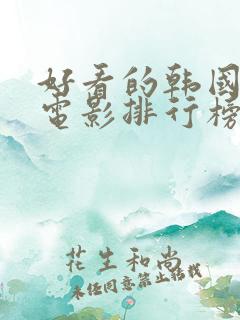 好看的韩国
电影排行榜
花生和尚
未经同意禁止转载